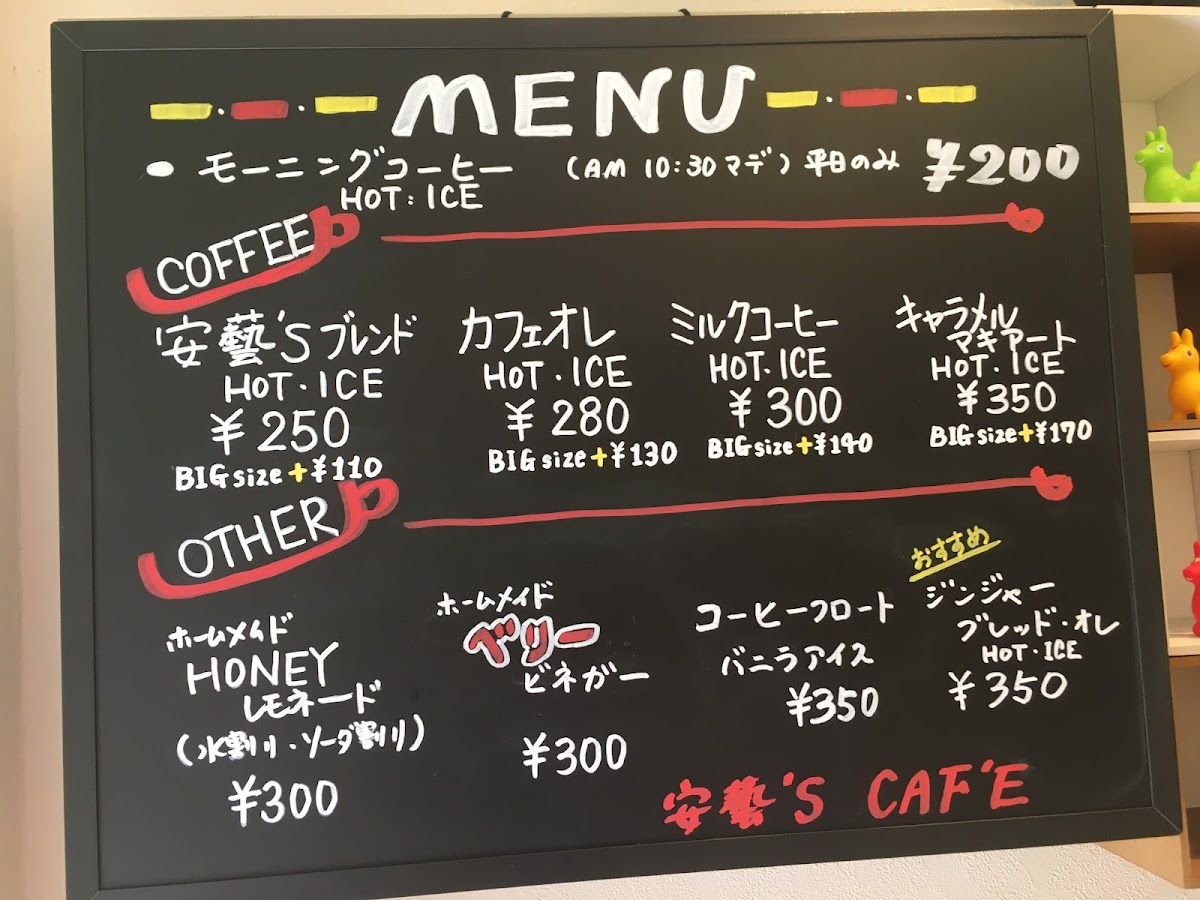 MENU
• モーニングコーヒー (AM 10:30マデ) 平日のみ ¥200
HOT: ICE
COFFEE
安藝'Sブレンド
HOT・ICE
¥250
BIG size+¥110
カフェオレ
HOT・ICE
¥280
BIG size+¥130
ミルクコーヒー
HOT・ICE
¥300
BIG size+¥140
キャラメル
マキアート
HOT・ICE
¥350
BIG size+¥170
OTHER
ホームメイド
HONEY
レモネード
(水割り・ソーダ割り)
¥300
ホームメイド
ベリー
ビネガー
¥300
コーヒーフロート
バニラアイス
¥350
おすすめ
ジンジャー
ブレッド・オレ
HOT・ICE
¥350
安藝'S CAF'E